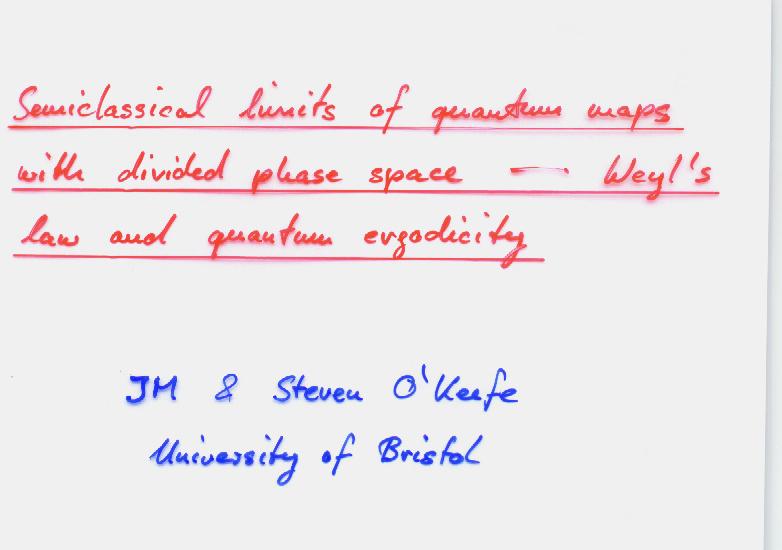 Semiclassical limits of quantum maps
with divided phase space — Weyl's
law and quantum ergodicity
JM & Steven O'Keefe
University of Bristol